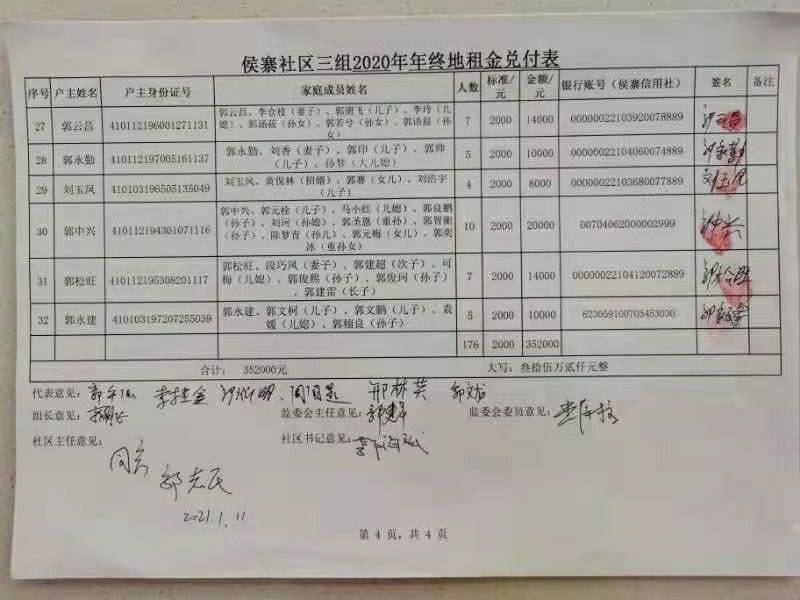 侯寨社区三组2020年年终地租金兑付表
序号 户主姓名 户主身份证号 家庭成员姓名 人数 标准/元 金额/元 银行账号（侯寨信用社） 签名 备注
27 郭云昌 410112196001271131 郭云昌、李仓枝（妻子）、郭朝飞（儿子）、李玲（儿媳）、郭涵菽（孙女）、郭若兮（孙女）、郭语晨（孙女） 7 2000 14000 00000022103920078889
28 郭永勤 410112197005161137 郭永勤、刘香（妻子）、郭印（儿子）、郭帅（儿子）、孙梦（大儿媳） 5 2000 10000 00000022104060074889
29 刘玉凤 410103196505135049 刘玉凤、黄保林（招婿）、郭赛（女儿）、刘浩宇（儿子） 4 2000 8000 00000022103680077889 刘玉凤
30 郭中兴 410112194301071116 郭中兴、郭元栓（儿子）、马小红（儿媳）、郭良鹏（孙子）、刘珂（孙媳）、郭圣恩（重孙）、郭智衡（孙子）、陈梦青（孙儿）、郭元梅（女儿）、郭奕冰（重孙女） 10 2000 20000 00704062000002999
31 郭松旺 410112195308201117 郭松旺、段巧凤（妻子）、郭建超（次子）、可梅（儿媳）、郭俊熙（孙子）、郭俊珂（孙子）、郭建雷（长子） 7 2000 14000 00000022104120072889
32 郭永建 410103197207255039 郭永建、郭文柯（儿子）、郭文鹏（儿子）、袁媛（儿媳）、郭楠良（孙子） 5 2000 10000 623059100705453030
176 2000 352000
合计： 352000元 大写：叁拾伍万贰仟元整
代表意见： 邢林英
组长意见： 监委会主任意见： 监委会委员意见：
社区主任意见： 社区书记意见：
同意
2021.1.11
第 4 页，共 4 页